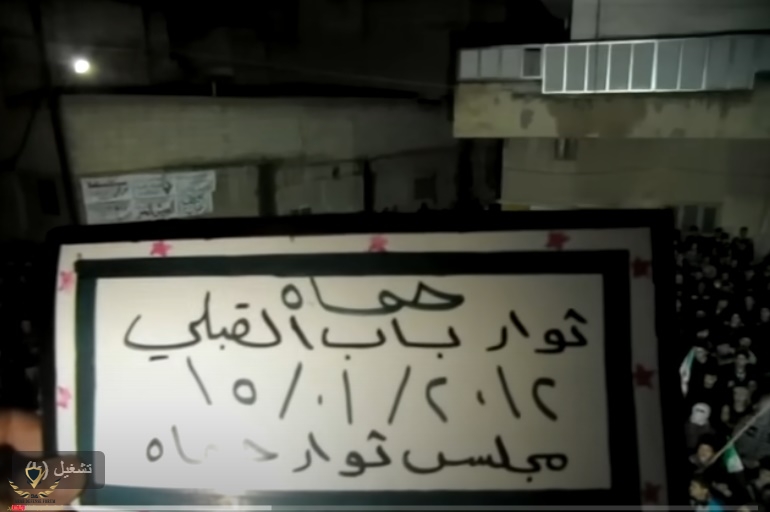 حماه
ثوار باب القبلي
١٥/٠١/٢٠١٢
مجلس ثوار حماه
تشغيل